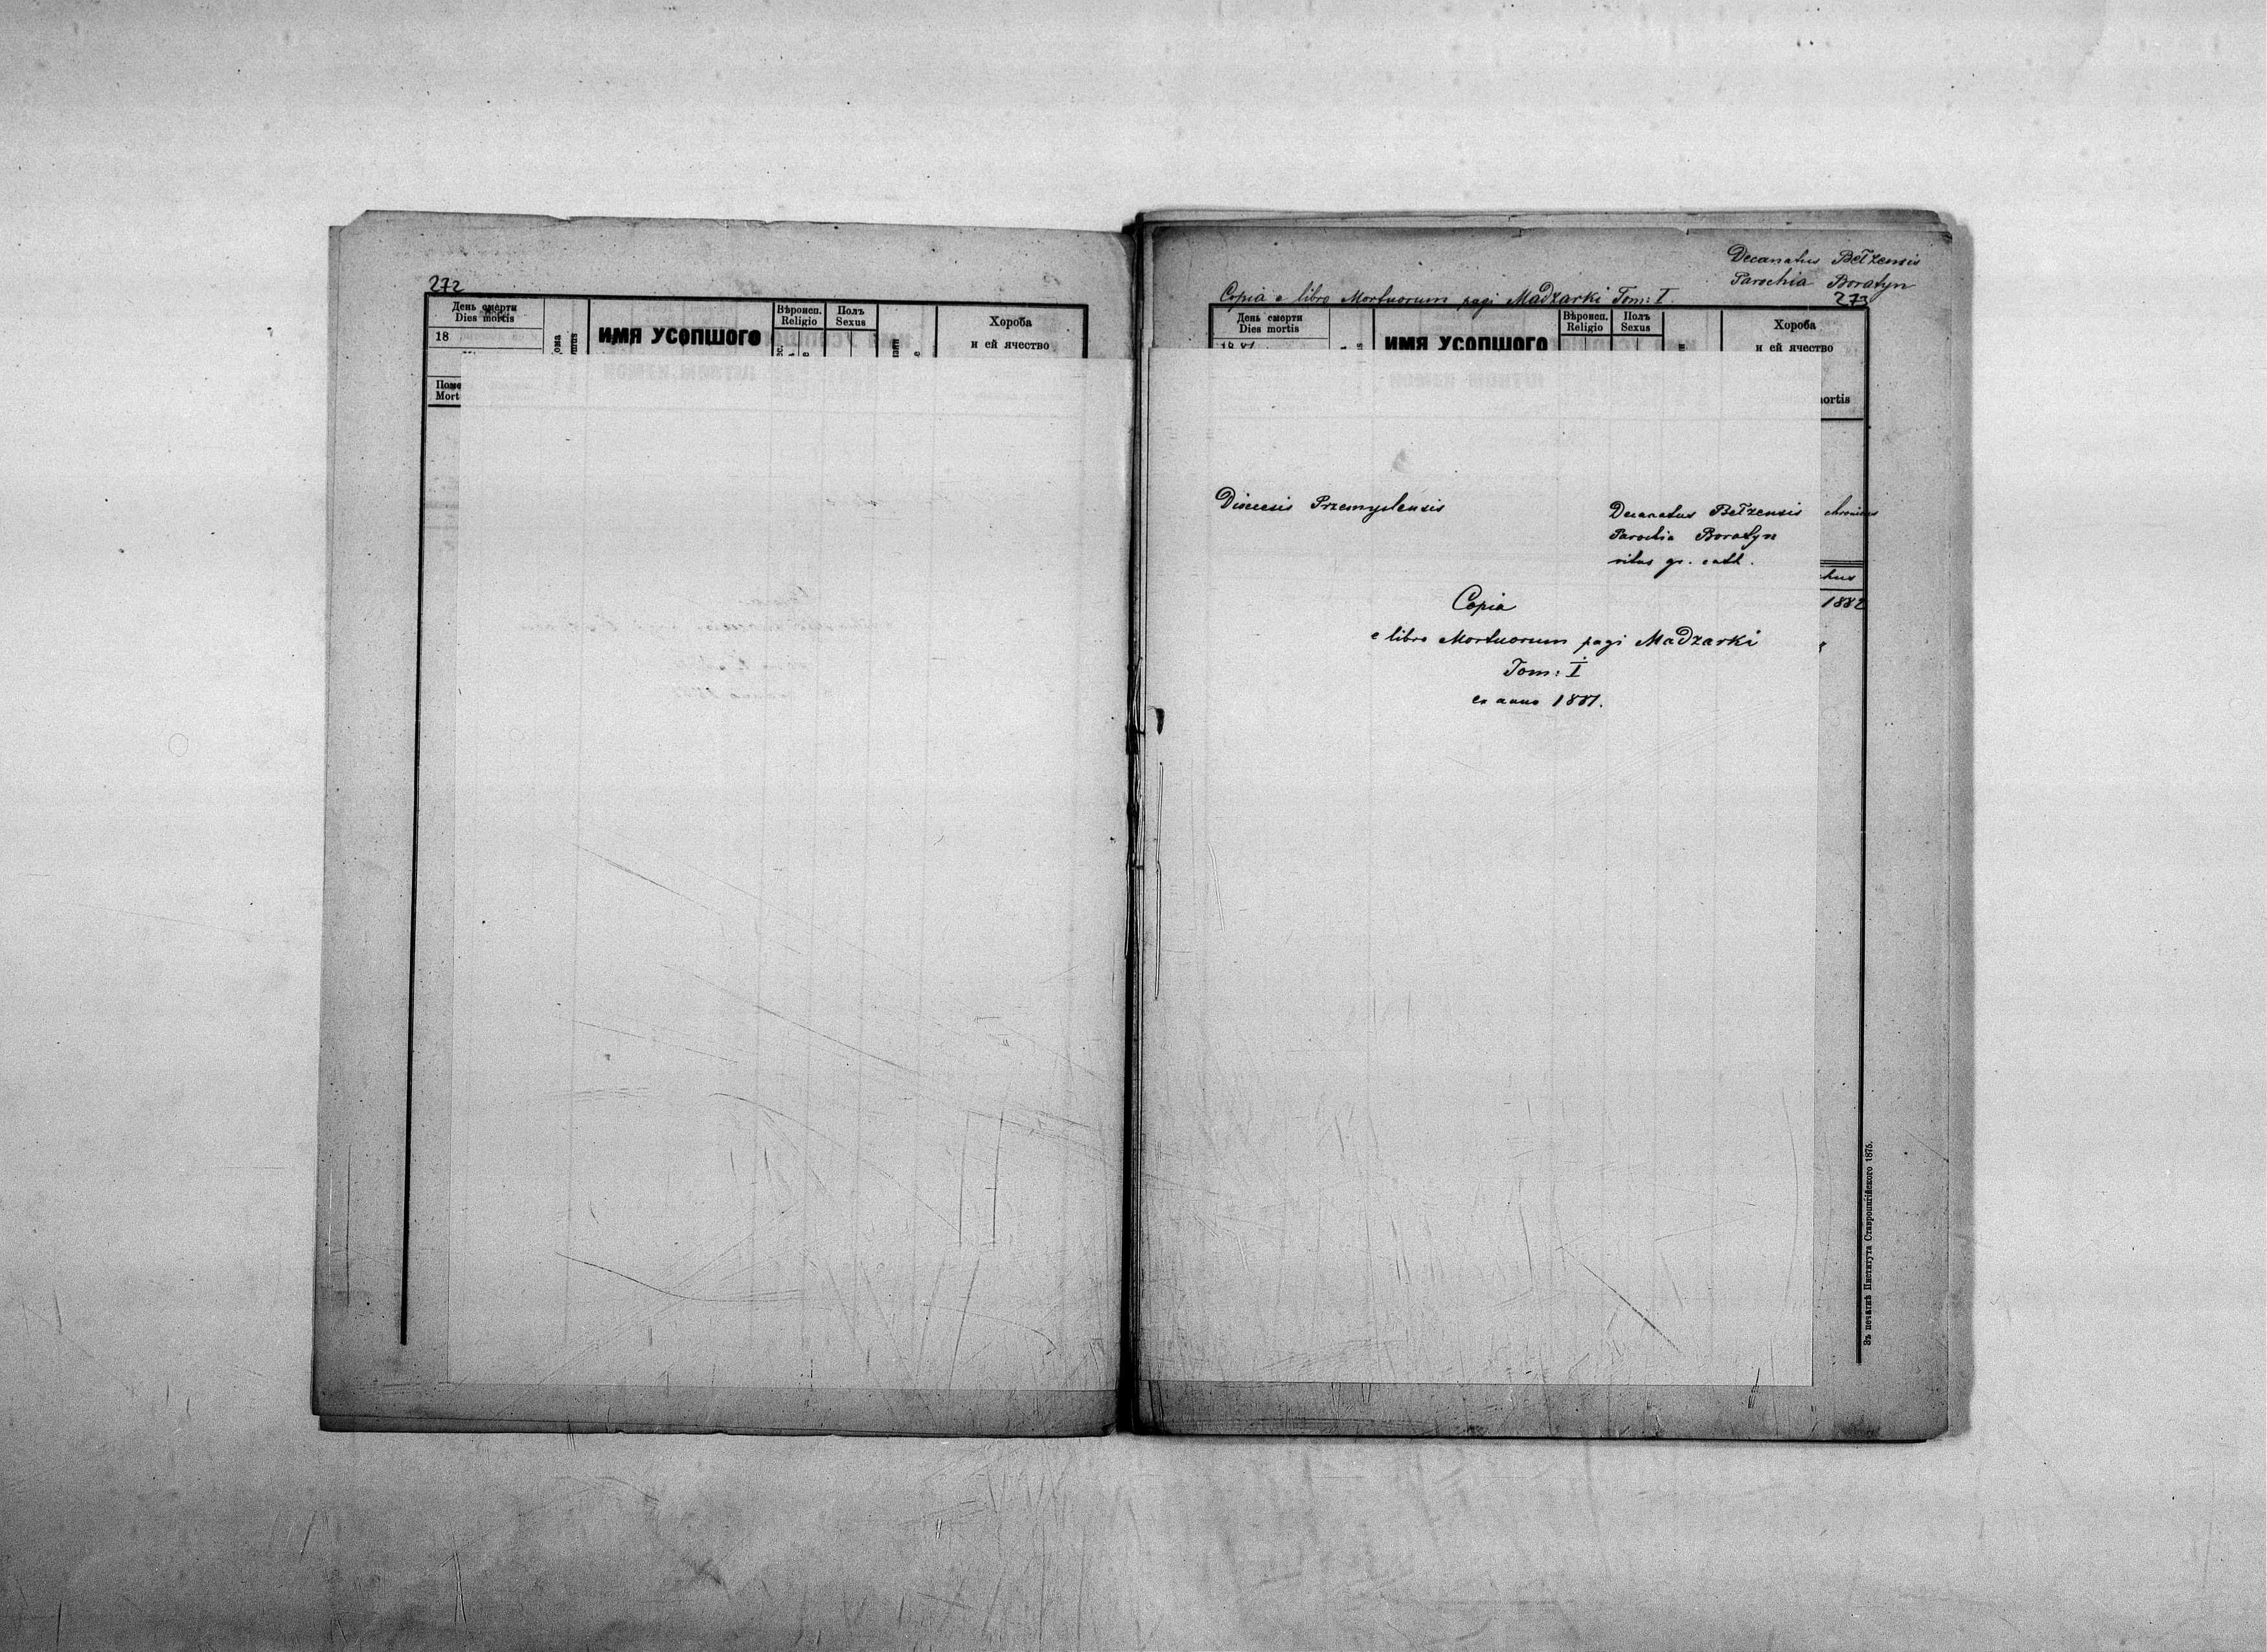 272
День смерти
Dies mortis
18
ИМЯ УСОПШОГО
Вѣроисп.
Religio
Полъ
Sexus
Хороба
и ей ячество
Поме
Mort
Decanatus Bełzensis
Parochia Boratyn
Copia e libro Mortuorum pagi Madzarki Tom: I.
273
День смерти
Dies mortis
ИМЯ УСОПШОГО
Вѣроисп.
Religio
Полъ
Sexus
Хороба
и ей ячество
mortis
Diecesis Przemyslensis
Decanatus Bełzensis
Parochia Boratyn
ritus gr. cath.
1882
Copia
e libro Mortuorum pagi Madzarki
Tom: I
ex anno 1881.
Зъ печатнѣ Института Ставропигійского 1875.